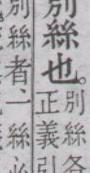 別絲也。別絲各
正義引
別絲者、一絲必